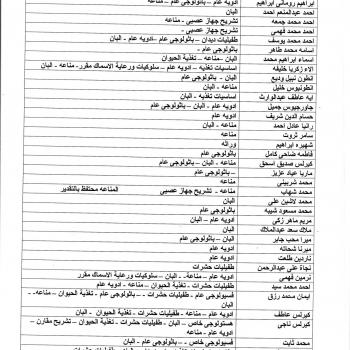 ابراهيم روماني ابراهيم ادويه عام – باثولوجي عام – مناعه
احمد عبدالمنعم احمد البان
احمد محمد جمعه تشريح جهاز عصبي – مناعه
احمد محمد فهمي تشريح جهاز عصبي -
احمد محمد يوسف طفيليات ديدان – باثولوجي عام – ادويه عام – البان
اسامه محمد طاهر باثولوجي عام -
اسماء ابراهيم محمد البان – مناعه – تغذية الحيوان
الاء زكريا خليفه اساسيات تغذيه – ادويه عام – سلوكيات ورعاية الاسماك مقرر- مناعه – البان
انطون نبيل وديع البان – باثولوجي عام
انطونيوس خليل مناعه - البان
ايه عاطف عبدالوارث اساسيات تغذيه - البان
جاورجيوس جميل البان – باثولوجي عام
حسام الدين شريف ادويه عام
رانيا عادل احمد البان
سامر ثروت مناعه
شهيره ابراهيم وراثه
فاطمه ضاحي كامل باثولوجي عام
كيرلس صديق اسحق مناعه - البان – باثولوجي عام
ماريا عياد عزيز باثولوجي عام
محمد شربيني مناعه
محمد شهاب مناعه - تشريح جهاز عصبي المناعه محتفظ بالتقدير
محمد لاشين علي البان
محمد مسعود شيبه البان – باثولوجي عام
مريم ماهر زكي ادويه عام – البان
ملاك سعد عبدالملاك البان
ميرا محب جابر باثولوجي عام
ميرنا شحاته ادويه عام
ناردين طلعت ادويه عام
نجاة علي عبدالرحمن طفيليات حشرات
نرمين فهمي ادويه عام – مناعة- البان – سلوكيات ورعاية الاسماك مقرر
احمد محمد سيد ادويه عام – طفيليات حشرات - تغذية الحيوان – البان
ايمان محمد رزق فسيولوجي عام – طفيليات حشرات – باثولوجي عام – ادويه عام – مناعه- البان
كيرلس عاطف ادويه عام – مناعه – طفيليات حشرات - تغذية الحيوان - البان
كيرلس ناجي هستولوجي خاص – البان – طفيليات حشرات – تغذية الحيوان – تشريح مقارن – باثولوجي عام
محمد ثابت فسيولوجي خاص – باثولوجي عام – البان